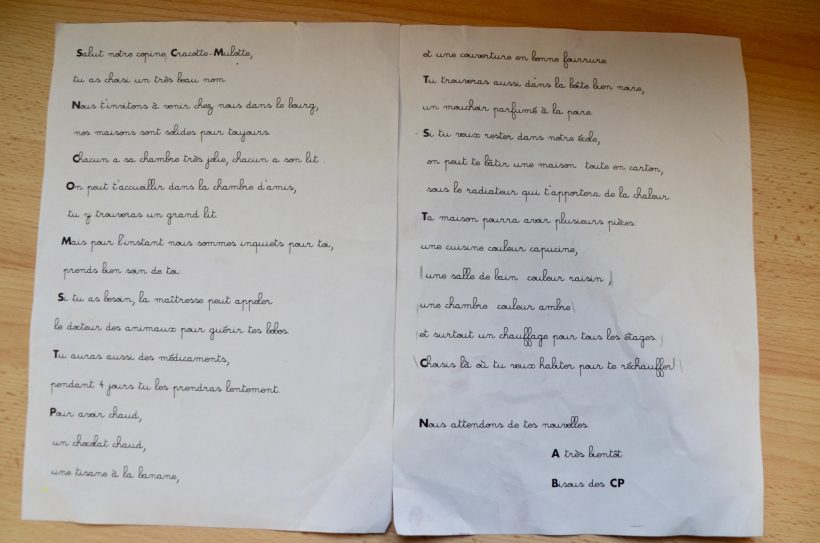 Salut notre copine, Cracotte-Mulotte,
tu as choisi un très beau nom.
Nous t'invitons à venir chez nous dans le bourg,
nos maisons sont solides pour toujours.
Chacun a sa chambre très jolie, chacun a son lit .
On peut t'accueillir dans la chambre d'amis,
tu y trouveras un grand lit.
Mais pour l'instant nous sommes inquiets pour toi,
prends bien soin de toi.
Si tu as besoin, la maîtresse peut appeler
le docteur des animaux pour guérir tes bobos.
Tu auras aussi des médicaments,
pendant 4 jours tu les prendras lentement.
Pour avoir chaud,
un chocolat chaud,
une tisane à la banane,
et une couverture en bonne fourrure.
Tu trouveras aussi dans la boîte bien noire,
un mouchoir parfumé à la poire.
Si tu veux rester dans notre école,
on peut te bâtir une maison toute en carton,
sous le radiateur qui t'apportera de la chaleur.
Ta maison pourra avoir plusieurs pièces:
une cuisine couleur capucine,
une salle de bain couleur raisin ,
une chambre couleur ambre
et surtout un chauffage pour tous les étages.
Choisis là où tu veux habiter pour te réchauffer!
Nous attendons de tes nouvelles.
A très bientôt
Bisous des CP